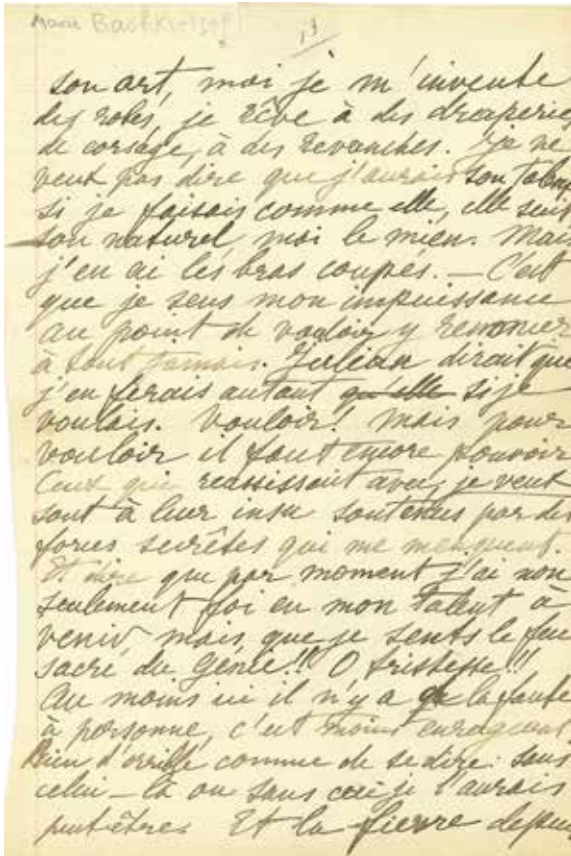 Marie Bashkirtseff
13
son art, moi je m'invente
des robes, je rêve à des draperies
de corsage, à des revanches. Je ne
veut pas dire que j'aurais son talent
si je faisais comme elle, elle suit
son naturel, moi le mien. Mais
j'en ai les bras coupés. — C'est
que je sens mon impuissance
au point de vouloir y renoncer
à tout jamais. Julian dirait que
j'en ferais autant qu'elle si je
voulais. Vouloir! Mais pour
vouloir il faut encore pouvoir
Ceux qui reussissent avec, je veut
sont à leur insu soutenus par des
forces secrêtes qui me menquent.
Et dire que par moment j'ai non
seulement foi en mon talent à
venir mais que je sents le feu
sacré du génie!! O tristesse!!
Au moins ici il n'y a la faute
à personne, c'est moins enrageant
Rien d'orrible comme de se dire: sans
celui-là ou sans ceci je l'aurais
peut-être. Et la fievre depuis